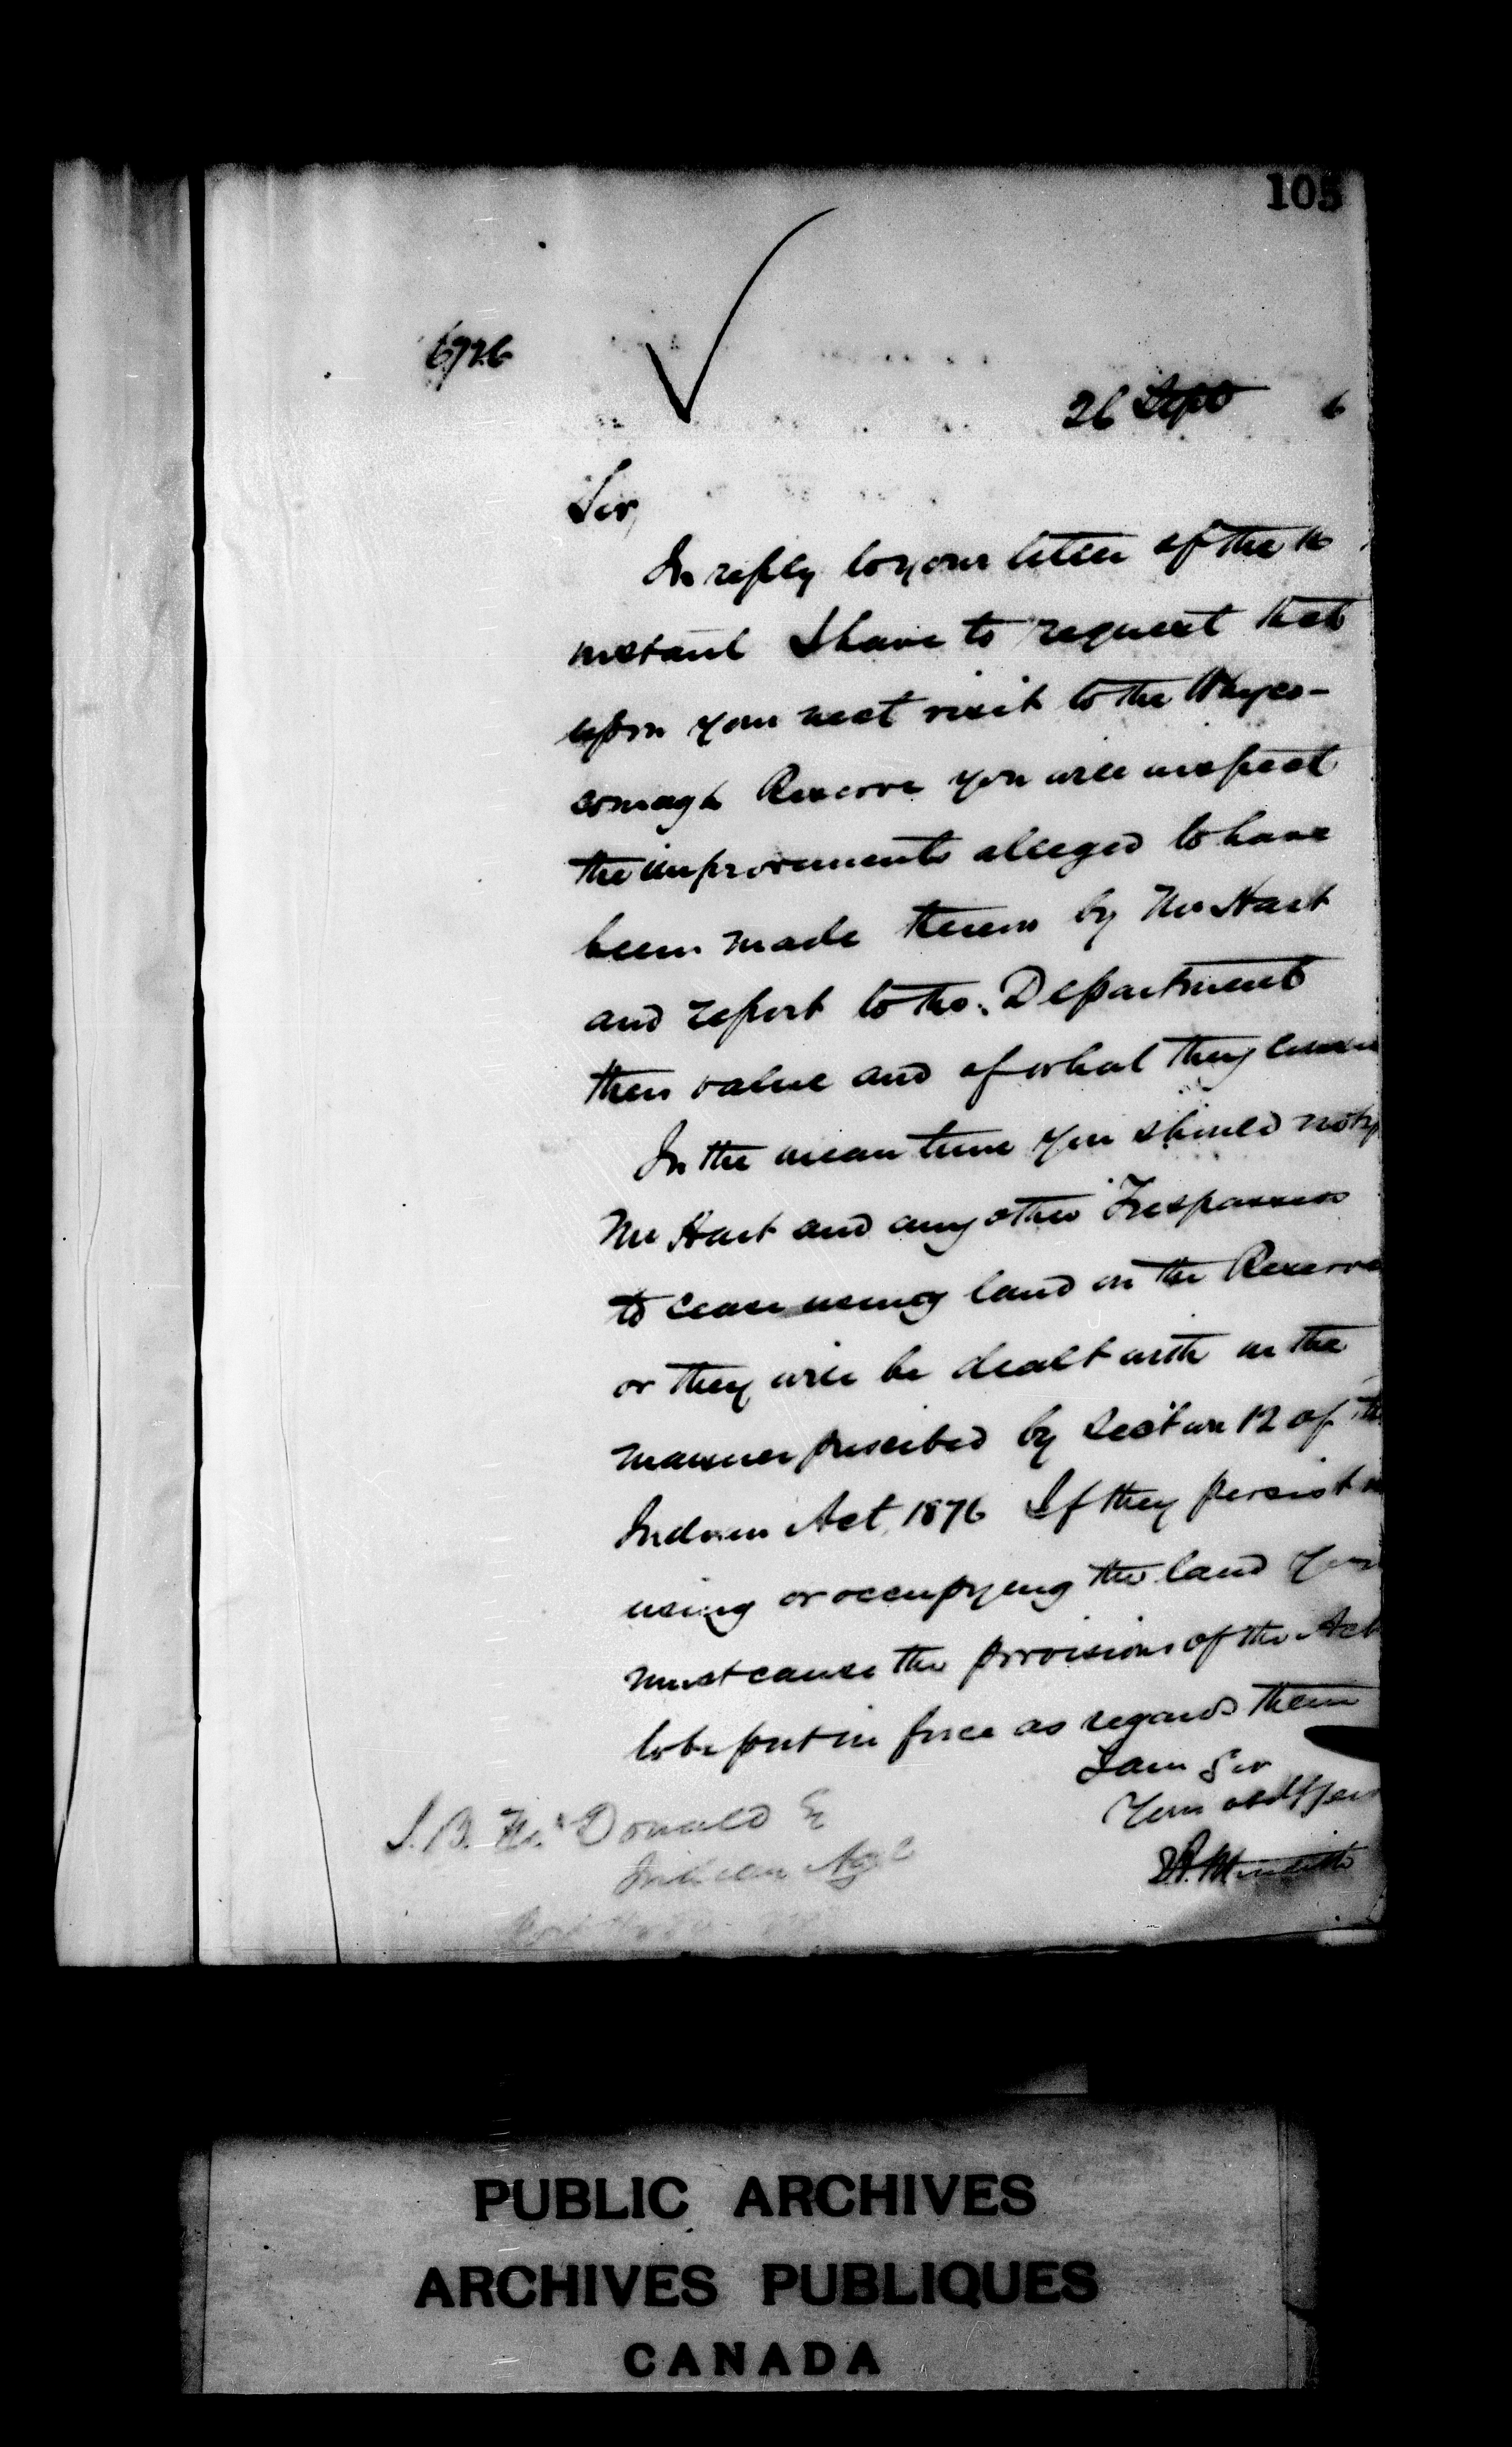 105
6726
26 Sept 6
Sir,
In reply to your letter of the 16
instant I have to request that
upon your next visit to the Whyco-
comagh Reserve you will inspect
the improvements alleged to have
been made thereon by Mr Hart
and report to the Department
their value and of what they consist
In the mean time you should notify
Mr Hart and any other Trespassers
to cease using land on the Reserve
or they will be dealt with in the
manner prescribed by Section 12 of the
Indian Act, 1876 If they persist in
using or occupying the land you
must cause the provisions of the Act
to be put in force as regards them
I am Sir
Your obdt Ser
E.A. Meredith
J. B. McDonald E
Indian Agt
PUBLIC ARCHIVES
ARCHIVES PUBLIQUES
CANADA